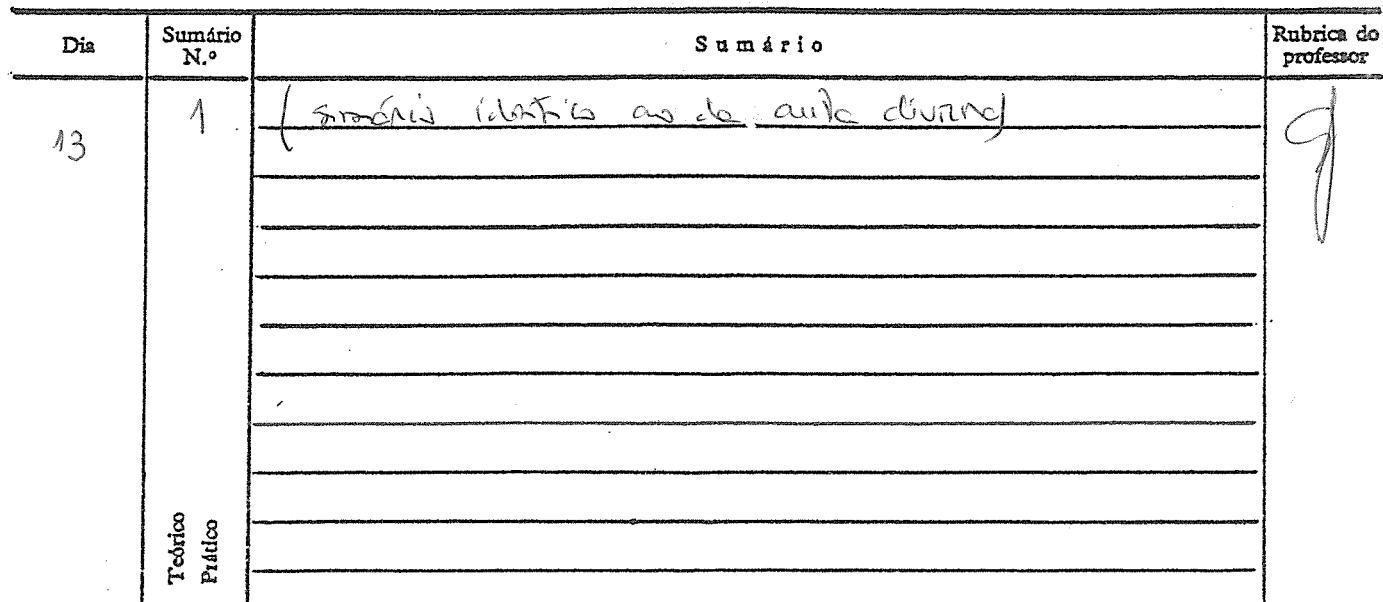 Dia
Sumário N.º
Sumário
Rubrica do professor
13
1
(sumário idêntico ao da aula diurna)
Teórico
Prático